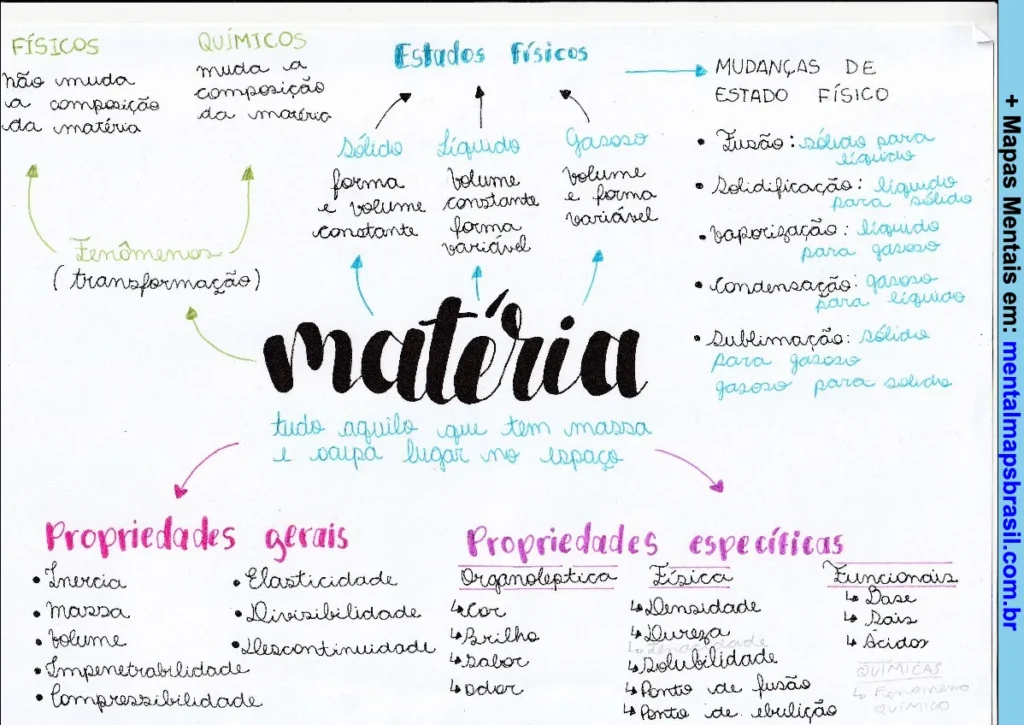 FÍSICOS
não muda
a composição
da matéria
QUÍMICOS
muda a
composição
da matéria
Fenômenos
(transformação)
Estados físicos
Sólido
forma
e volume
constante
Líquido
volume
constante
forma
variável
Gasoso
volume
e forma
variável
MUDANÇAS DE
ESTADO FÍSICO
• Fusão: sólido para
líquido
• Solidificação: líquido
para sólido
• Vaporização: líquido
para gasoso
• Condensação: gasoso
para líquido
• Sublimação: sólido
para gasoso
gasoso para solido
matéria
tudo aquilo que tem massa
e ocupa lugar no espaço
Propriedades gerais
• Inercia
• Massa
• Volume
• Impenetrabilidade
• Compressibilidade
• Elasticidade
• Divisibilidade
• Descontinuidade
Propriedades específicas
Organoleptica
↳ Cor
↳ Brilho
↳ Sabor
↳ Odor
Física
↳ Densidade
↳ Dureza
↳ Tenacidade
↳ Solubilidade
↳ Ponto de fusão
↳ Ponto de ebulição
Funcionais
↳ Base
↳ Sais
↳ Ácidos
QUÍMICAS
↳ Fenomeno
QUÍMICO
+ Mapas Mentais em: mentalmapsbrasil.com.br